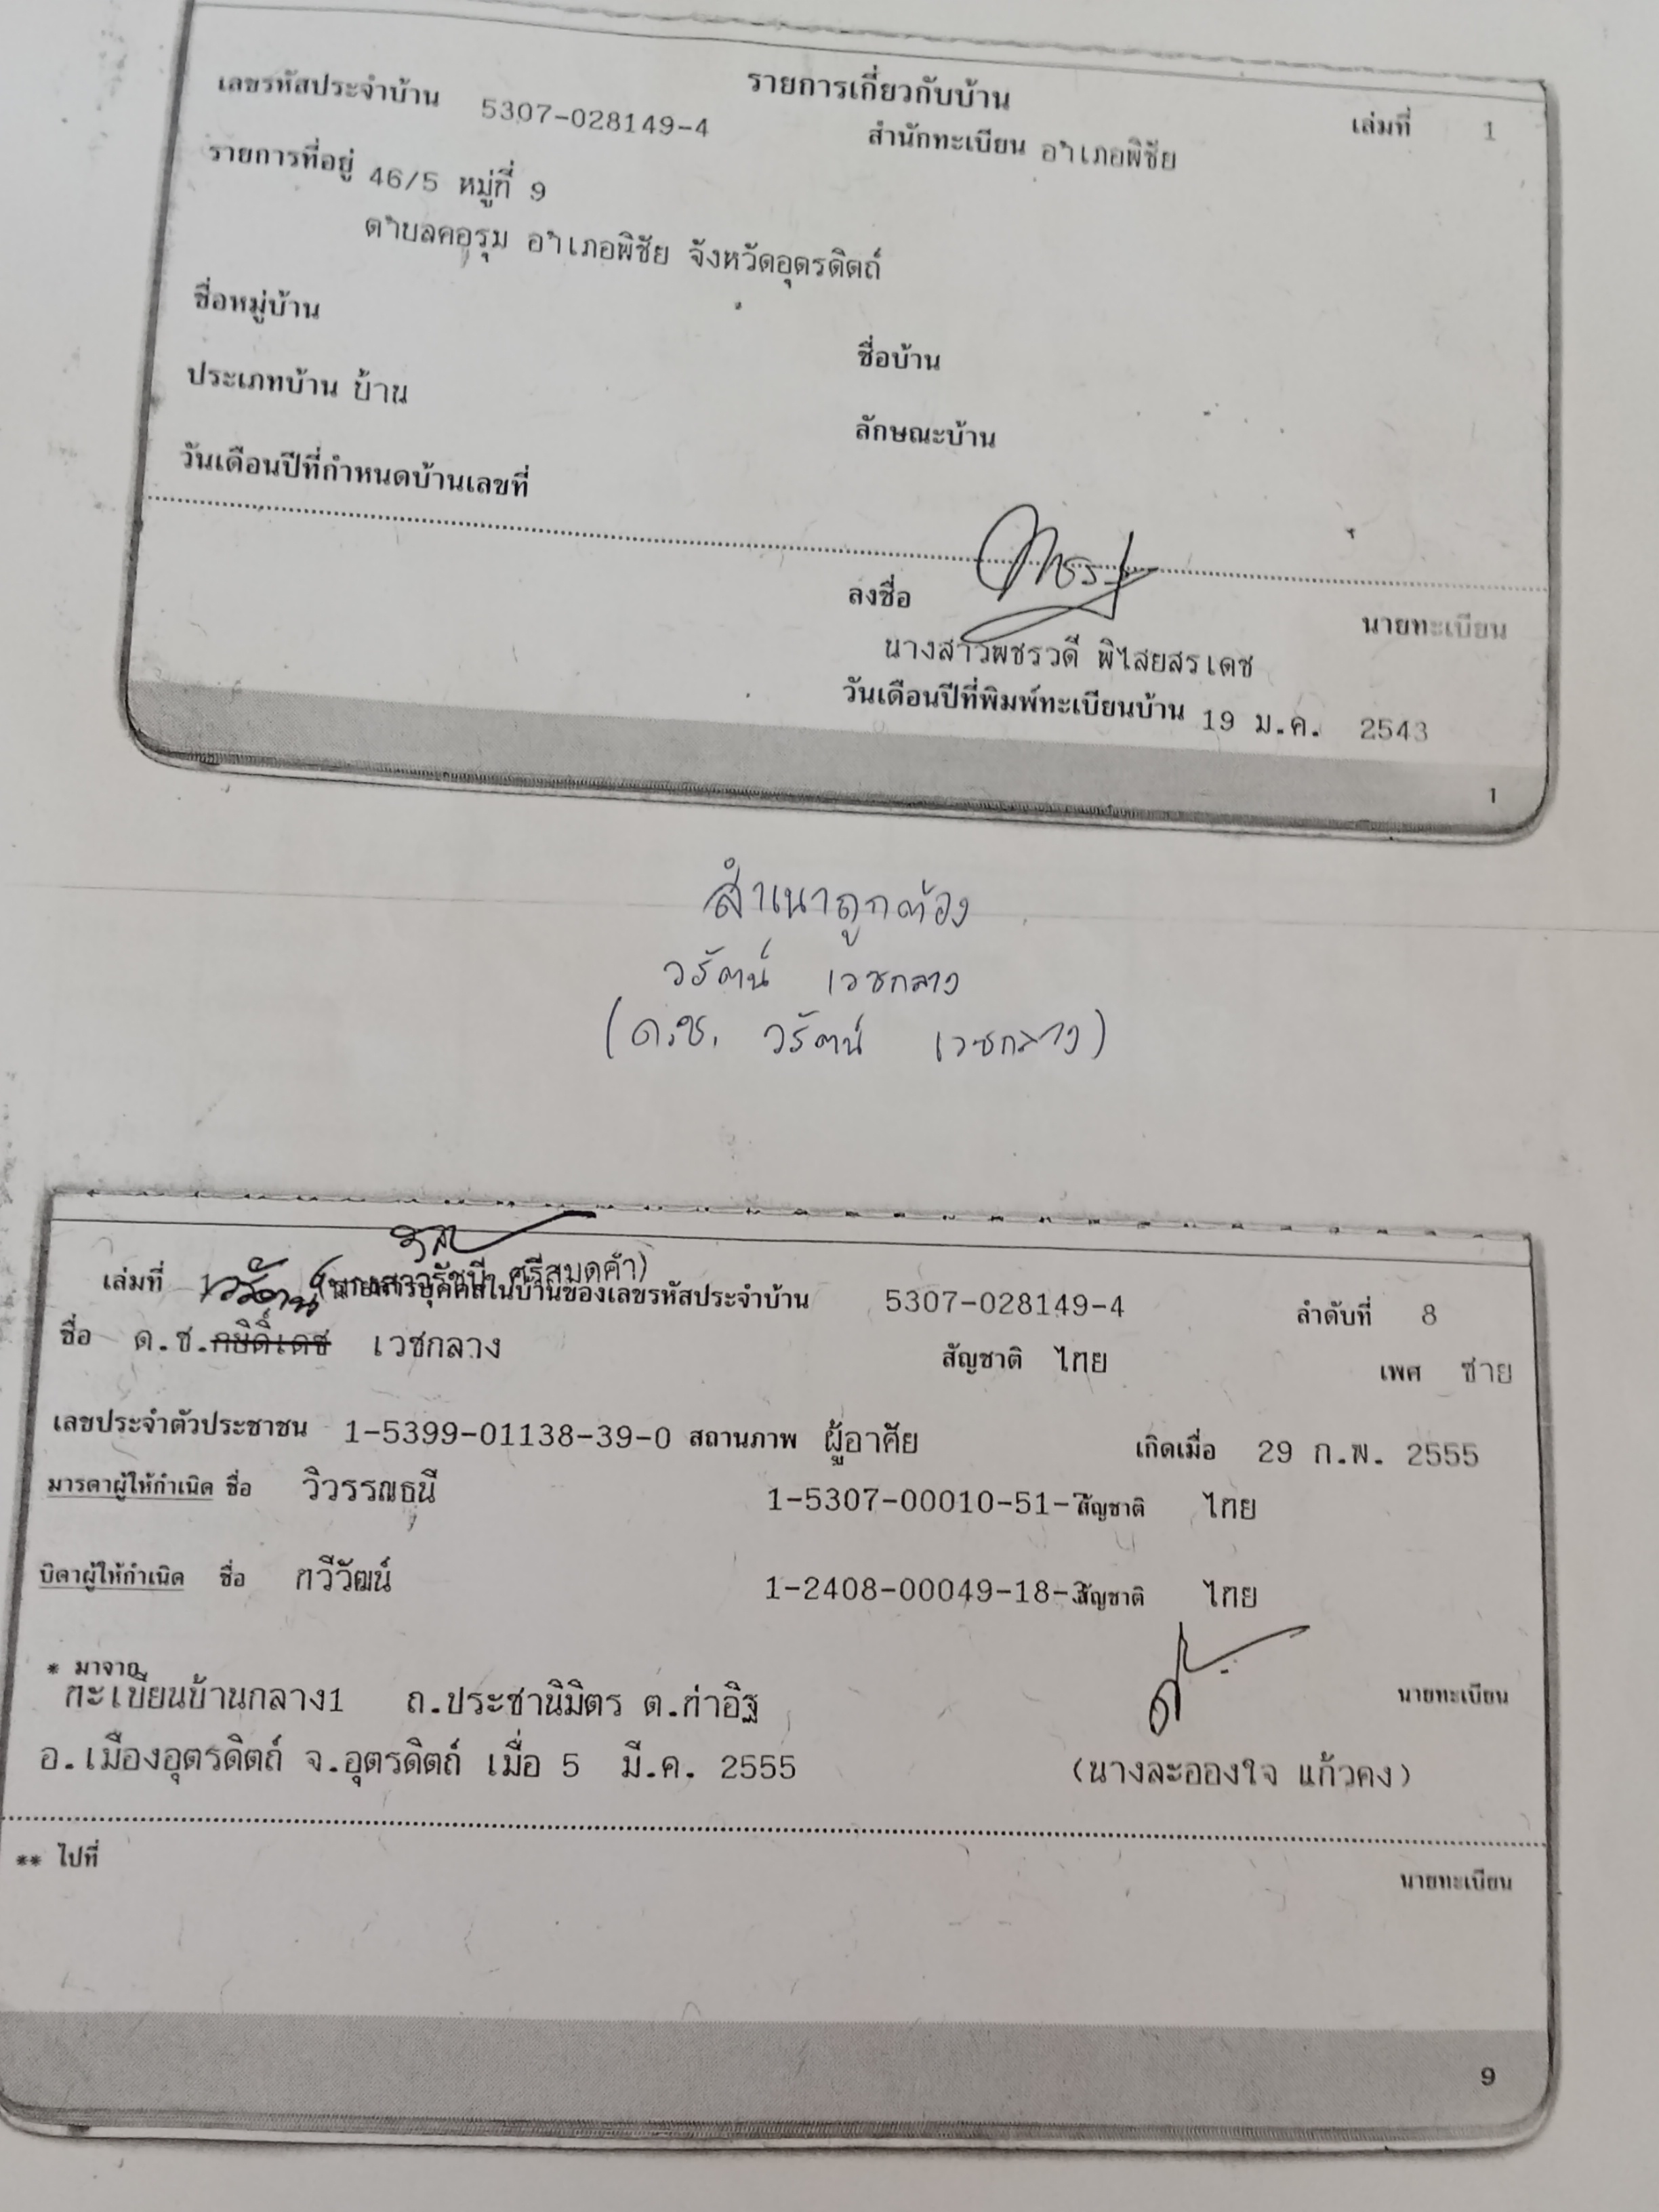 รายการเกี่ยวกับบ้าน เล่มที่ 1
เลขรหัสประจำบ้าน 5307-028149-4 สำนักทะเบียน อำเภอพิชัย
รายการที่อยู่ 46/5 หมู่ที่ 9
ตำบลคอรุม อำเภอพิชัย จังหวัดอุตรดิตถ์
ชื่อหมู่บ้าน ชื่อบ้าน
ประเภทบ้าน บ้าน ลักษณะบ้าน
วันเดือนปีที่กำหนดบ้านเลขที่
ลงชื่อ นายทะเบียน
นางสาวพชรวดี พิไสยสรเดช
วันเดือนปีที่พิมพ์ทะเบียนบ้าน 19 ม.ค. 2543
1
สำเนาถูกต้อง
วรัตน์ เวชกลาง
(ด.ช. วรัตน์ เวชกลาง)
(นางสาวรัชนี ศรีสมุดคำ)
เล่มที่ 1 รายการบุคคลในบ้านของเลขรหัสประจำบ้าน 5307-028149-4 ลำดับที่ 8
วรัตน์
ชื่อ ด.ช.กษิดิ์เดช เวชกลาง สัญชาติ ไทย เพศ ชาย
เลขประจำตัวประชาชน 1-5399-01138-39-0 สถานภาพ ผู้อาศัย เกิดเมื่อ 29 ก.พ. 2555
มารดาผู้ให้กำเนิด ชื่อ วิวรรณธนี 1-5307-00010-51- สัญชาติ ไทย
บิดาผู้ให้กำเนิด ชื่อ ทวีวัฒน์ 1-2408-00049-18-3 สัญชาติ ไทย
* มาจาก
ทะเบียนบ้านกลาง1 ถ.ประชานิมิตร ต.ท่าอิฐ นายทะเบียน
อ.เมืองอุตรดิตถ์ จ.อุตรดิตถ์ เมื่อ 5 มี.ค. 2555 (นางละอองใจ แก้วคง)
** ไปที่ นายทะเบียน
9